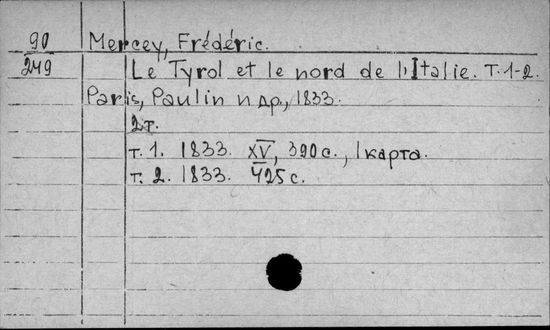 90 Mercey, Frédéric.
249 Le Tyrol et le nord de l'Italie. Т. 1-2.
Paris, Paulin и др., 1833.
2 т.
т. 1. 1833. XV, 390 с., 1 карта.
т. 2. 1833. 425 с.